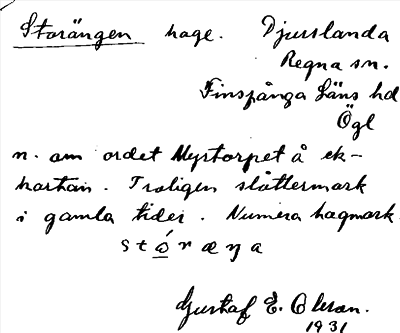 Storängen hage. Djurslanda
Regna sn.
Finspånga Läns hd
Ögl
n. om ordet Myrtorpet å ek-
kartan. Troligen slåttermark
i gamla tider. Numera hagmark.
Gustaf E. Olson.
1931